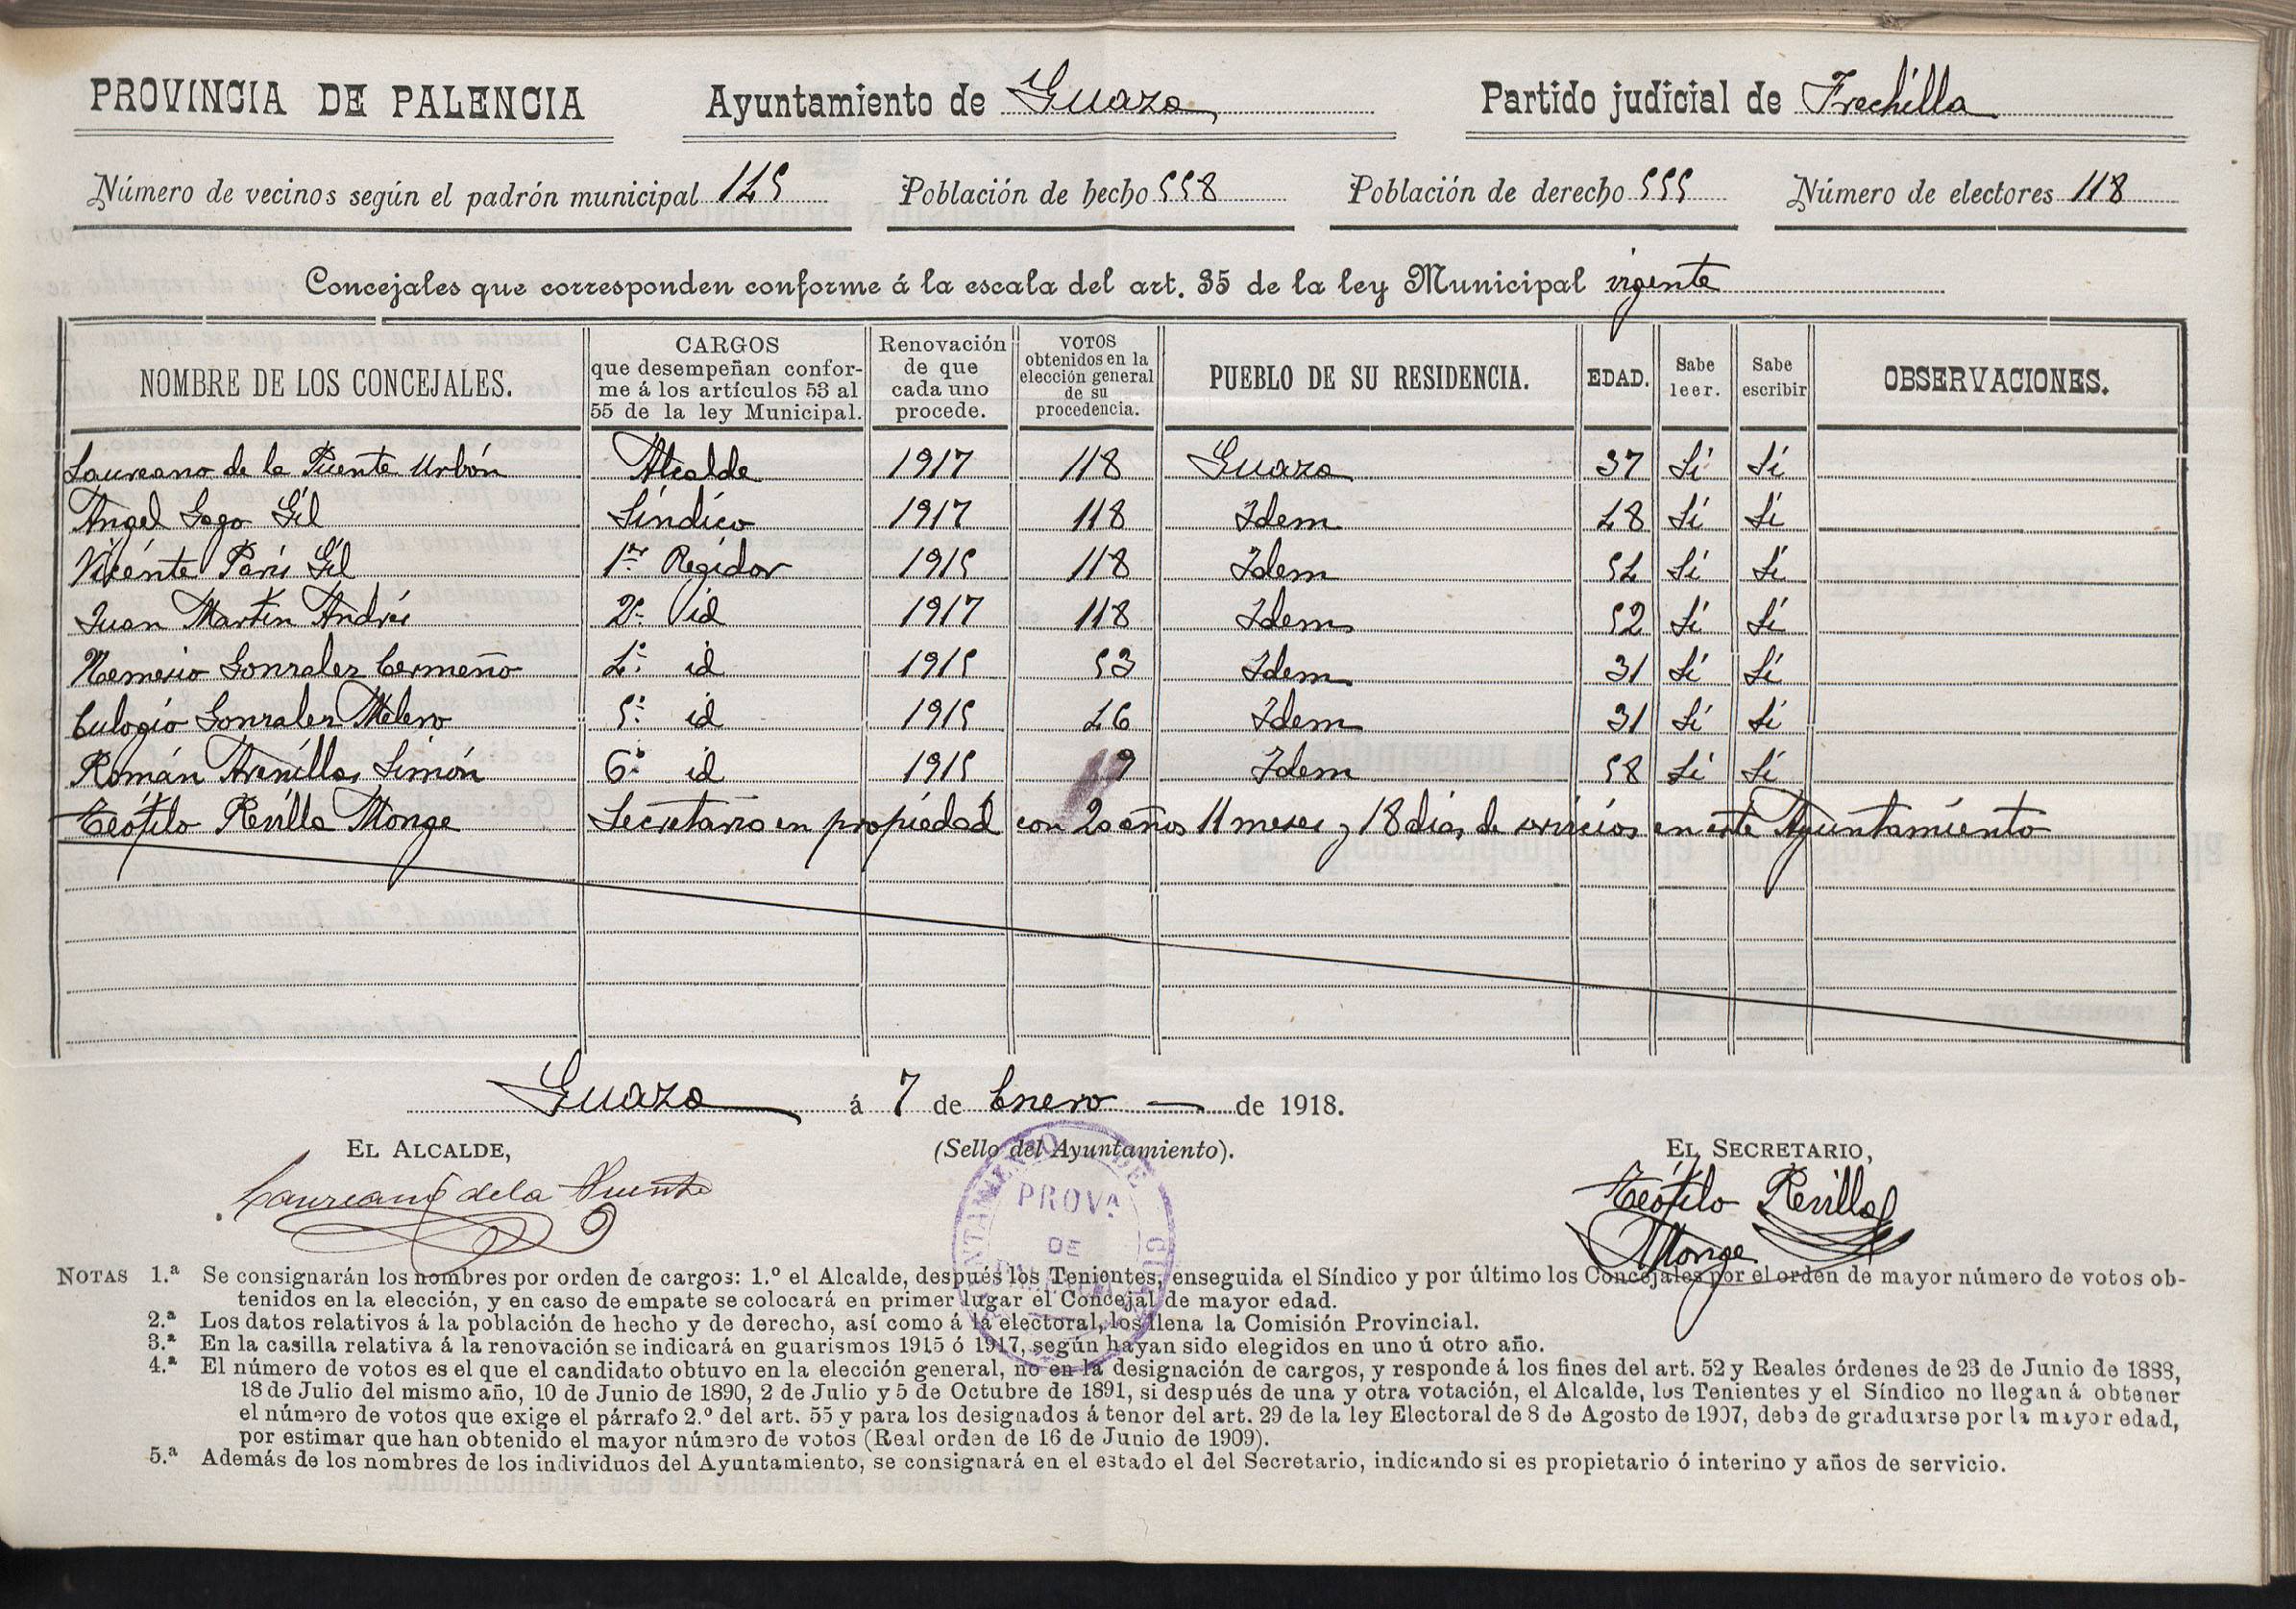 PROVINCIA DE PALENCIA Ayuntamiento de Guaza Partido judicial de Frechilla
Número de vecinos según el padrón municipal 145 Población de hecho 558 Población de derecho 555 Número de electores 118
Concejales que corresponden conforme á la escala del art. 35 de la ley Municipal vigente
NOMBRE DE LOS CONCEJALES. CARGOS que desempeñan conforme á los artículos 53 al 55 de la ley Municipal. Renovación de que cada uno procede. VOTOS obtenidos en la elección general de su procedencia. PUEBLO DE SU RESIDENCIA. EDAD. Sabe leer. Sabe escribir OBSERVACIONES.
Laureano de la Puente Urbón Alcalde 1917 118 Guaza 37 Sí Sí
Angel Gago Gil Síndico 1917 118 Idem 48 Sí Sí
Vicente Paris Gil 1er Regidor 1915 118 Idem 54 Sí Sí
Juan Martín Andrés 2º id 1917 118 Idem 52 Sí Sí
Nemesio Gonzalez Cermeño 4º id 1915 53 Idem 31 Sí Sí
Eulogio Gonzalez Melero 5º id 1915 46 Idem 31 Sí Sí
Román Arenillas Simón 6º id 1915 9 Idem 58 Sí Sí
Teófilo Revilla Monge Secretario en propiedad con 20 años 11 meses y 18 días de servicios en este Ayuntamiento
Guaza á 7 de Enero de 1918.
EL ALCALDE, (Sello del Ayuntamiento). EL SECRETARIO,
Laureano de la Puente
Teófilo Revilla
Monge
AYUNTAMIENTO DE
PROVA
DE
NOTAS 1.ª Se consignarán los nombres por orden de cargos: 1.º el Alcalde, después los Tenientes, enseguida el Síndico y por último los Concejales por el orden de mayor número de votos ob-
tenidos en la elección, y en caso de empate se colocará en primer lugar el Concejal de mayor edad.
2.ª Los datos relativos á la población de hecho y de derecho, así como á la electoral, los llena la Comisión Provincial.
3.ª En la casilla relativa á la renovación se indicará en guarismos 1915 ó 1917, según hayan sido elegidos en uno ú otro año.
4.ª El número de votos es el que el candidato obtuvo en la elección general, no en la designación de cargos, y responde á los fines del art. 52 y Reales órdenes de 23 de Junio de 1888,
18 de Julio del mismo año, 10 de Junio de 1890, 2 de Julio y 5 de Octubre de 1891, si después de una y otra votación, el Alcalde, los Tenientes y el Síndico no llegan á obtener
el número de votos que exige el párrafo 2.º del art. 55 y para los designados á tenor del art. 29 de la ley Electoral de 8 de Agosto de 1907, debe de graduarse por la mayor edad,
por estimar que han obtenido el mayor número de votos (Real orden de 16 de Junio de 1909).
5.ª Además de los nombres de los individuos del Ayuntamiento, se consignará en el estado el del Secretario, indicando si es propietario ó interino y años de servicio.